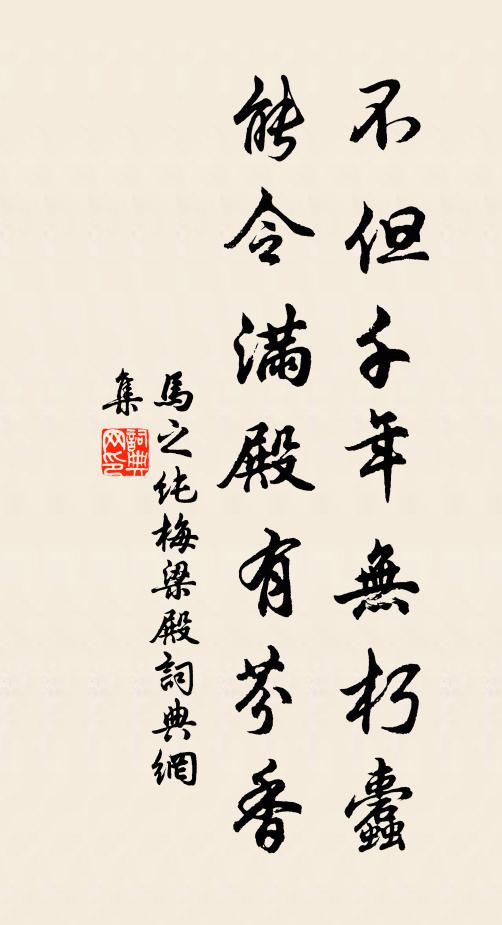 不但千年無朽蠹
能令滿殿有芬香
馬之純梅梁殿詞典網
集
詞典网印